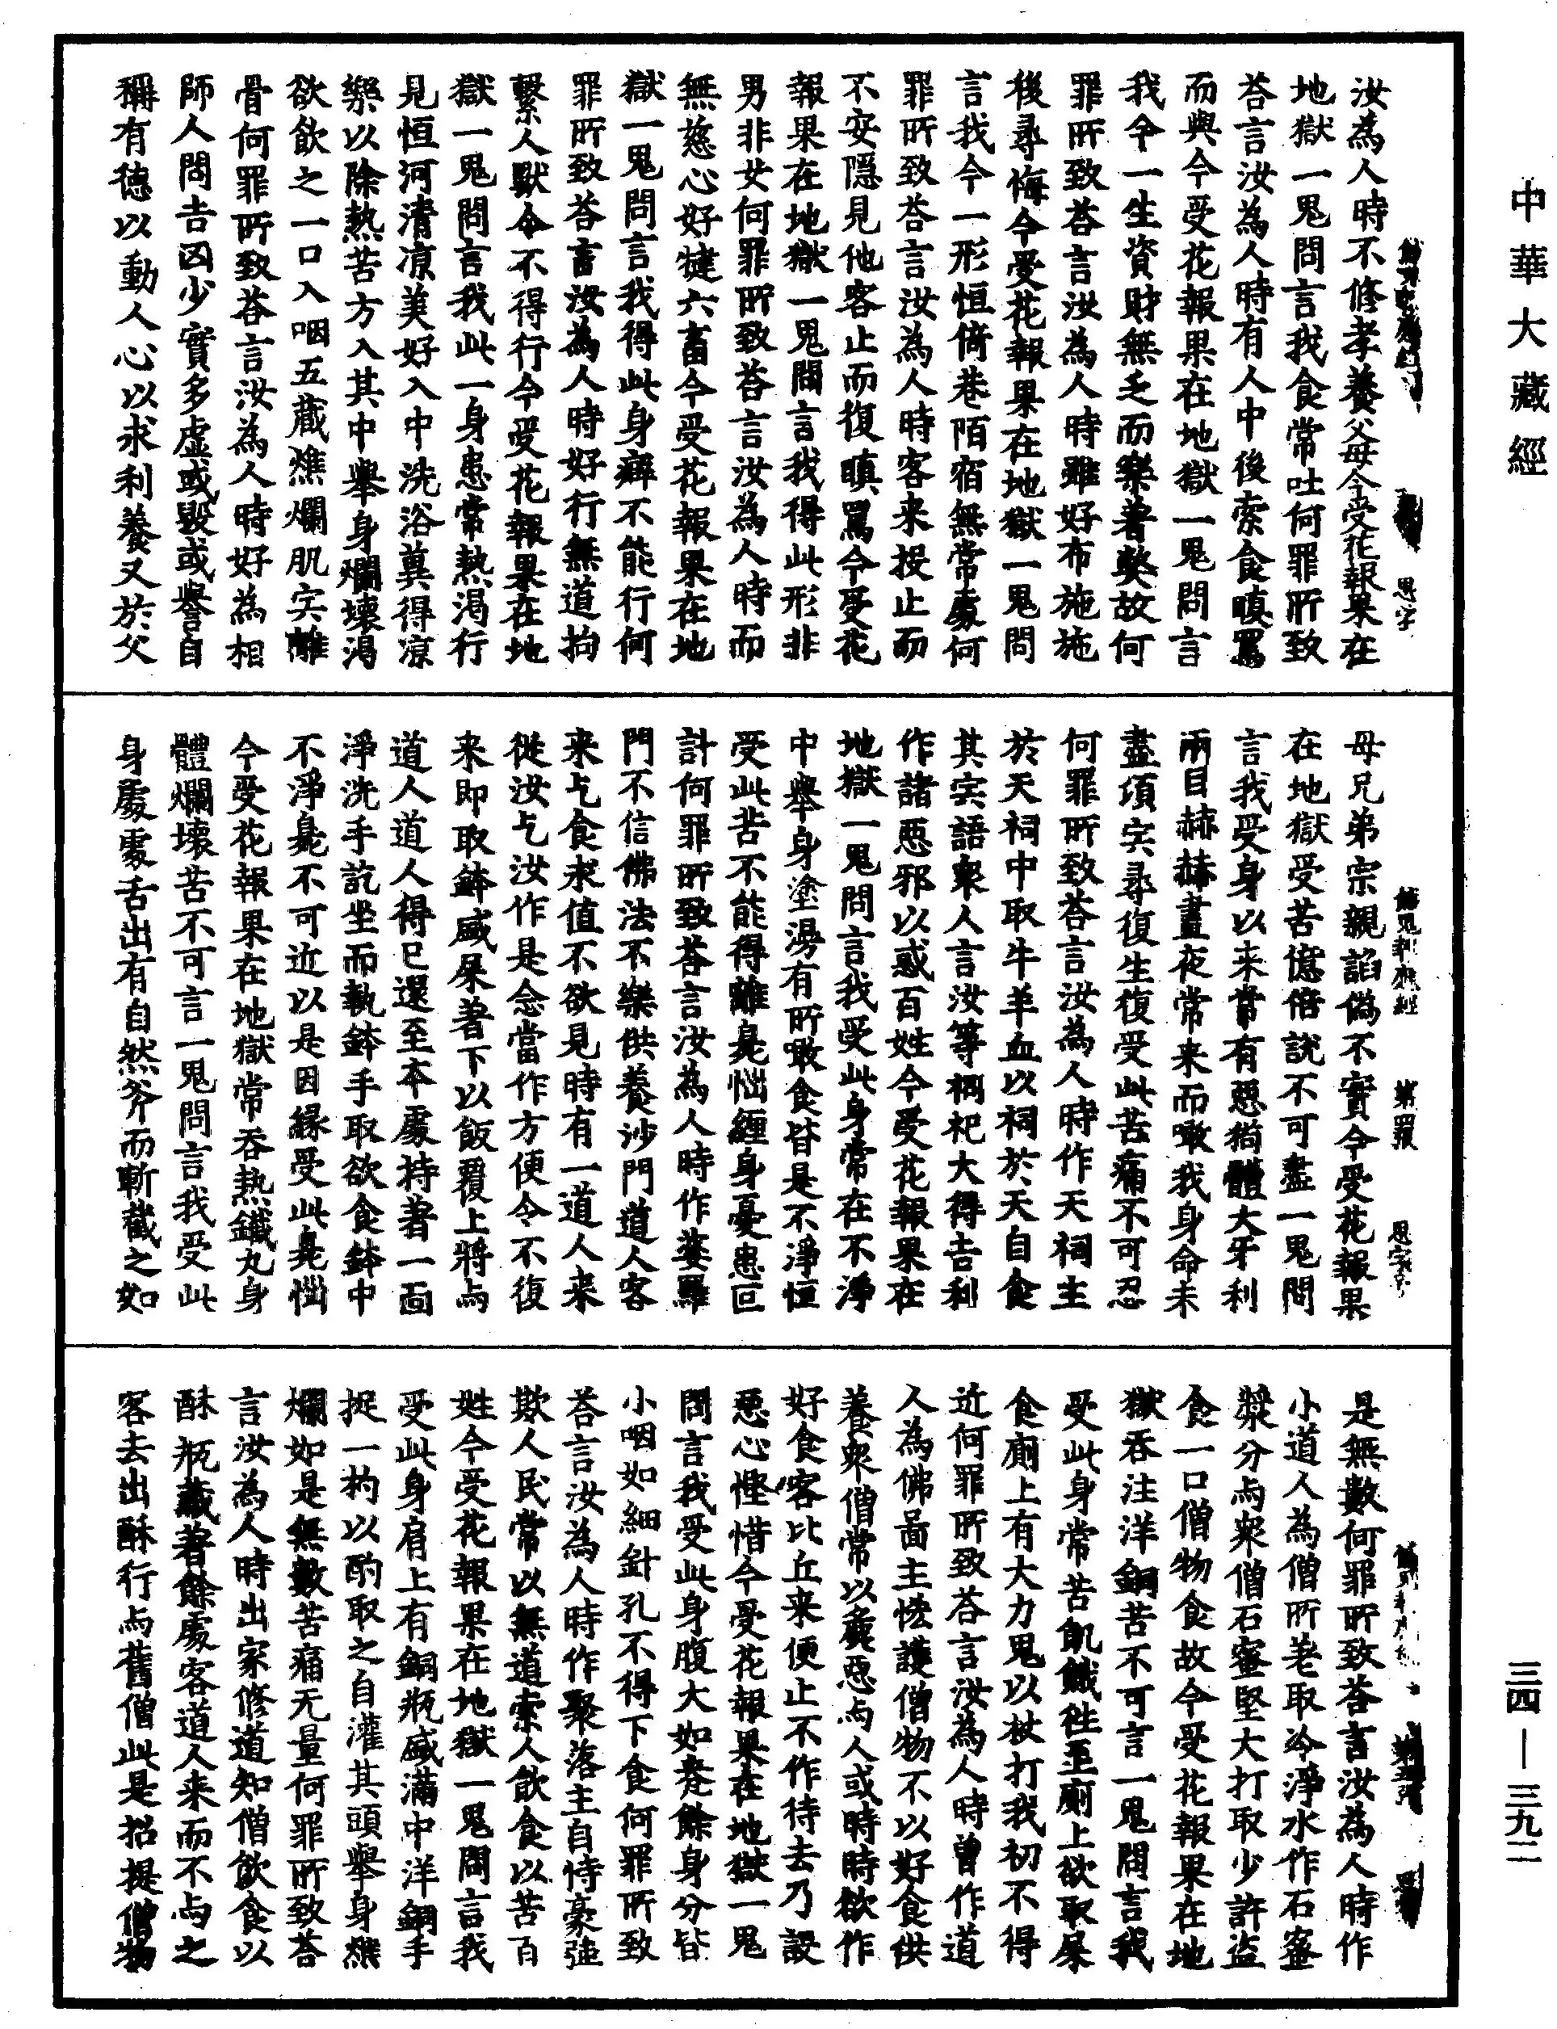 中華大藏經
汝為人時不修孝養父母今受花報果在
地獄一鬼問言我食常吐何罪所致
荅言汝為人時有人中後索食瞋罵
而與今受花報果在地獄一鬼問言
我今一生資財無乏而樂著弊故何
罪所致荅言汝為人時雖好布施施
後尋悔今受花報果在地獄一鬼問
言我今一形恒倚巷陌宿無常處何
罪所致荅言汝為人時客来投止而
不安隱見他客止而復瞋罵今受花
報果在地獄一鬼問言我得此形非
男非女何罪所致荅言汝為人時而
無慈心好犍六畜今受花報果在地
獄一鬼問言我得此身癖不能行何
罪所致荅言汝為人時好行無道拘
繫人獸令不得行今受花報果在地
獄一鬼問言我此一身患常熱渴行
見恒河清凉美好入中洗浴兾得凉
樂以除熱苦方入其中舉身爛壞渴
欲飲之一口入咽五藏燋爛肌宍離
骨何罪所致荅言汝為人時好為相
師人問吉凶少實多虛或毀或譽自
稱有德以動人心以求利養又於父
母兄弟宗親諂偽不實今受花報果
在地獄受苦億倍說不可盡一鬼問
言我受身以来常有惡猫體大牙利
兩目赫赫晝夜常来而噉我身命未
盡須宍尋復生復受此苦痛不可忍
何罪所致荅言汝為人時作天祠主
於天祠中取牛羊血以祠於天自食
其宍語衆人言汝等祠祀大得吉利
作諸惡邪以惑百姓今受花報果在
地獄一鬼問言我受此身常在不淨
中舉身塗湯有所噉食皆是不淨恒
受此苦不能得離臭惱纏身憂患叵
計何罪所致荅言汝為人時作婆羅
門不信佛法不樂供養沙門道人客
来乞食求值不欲見時有一道人来
從汝乞汝作是念當作方便令不復
来即取鉢盛屎著下以飯覆上將与
道人道人得已還至本處持著一面
淨洗手訖坐而執鉢手取欲食鉢中
不淨臭不可近以是因緣受此臭惱
今受花報果在地獄常吞熱鐵丸身
體爛壞苦不可言一鬼問言我受此
身處處舌出有自然斧而斬截之如
是無數何罪所致荅言汝為人時作
小道人為僧所差取冷淨水作石蜜
漿分与衆僧石蜜堅大打取少許盜
食一口僧物食故今受花報果在地
獄吞注洋銅苦不可言一鬼問言我
受此身常苦飢餓徃至廁上欲取屎
食廁上有大力鬼以杖打我初不得
近何罪所致荅言汝為人時曾作道
人為佛啚主悋護僧物不以好食供
養衆僧常以麁惡与人或時時欲作
好食客比丘来便止不作待去乃設
惡心慳惜今受花報果在地獄一鬼
問言我受此身腹大如瓮餘身分皆
小咽如細針孔不得下食何罪所致
荅言汝為人時作聚落主自恃豪強
欺人民常以無道索人飲食以苦百
姓今受花報果在地獄一鬼問言我
受此身肩上有銅瓶盛滿中洋銅手
捉一杓以酌取之自灌其頭舉身燋
爛如是無數苦痛无量何罪所致荅
言汝為人時出家修道知僧飲食以
酥瓶藏著餘處客道人来而不与之
客去出酥行与舊僧此是招提僧物
三四—三九二